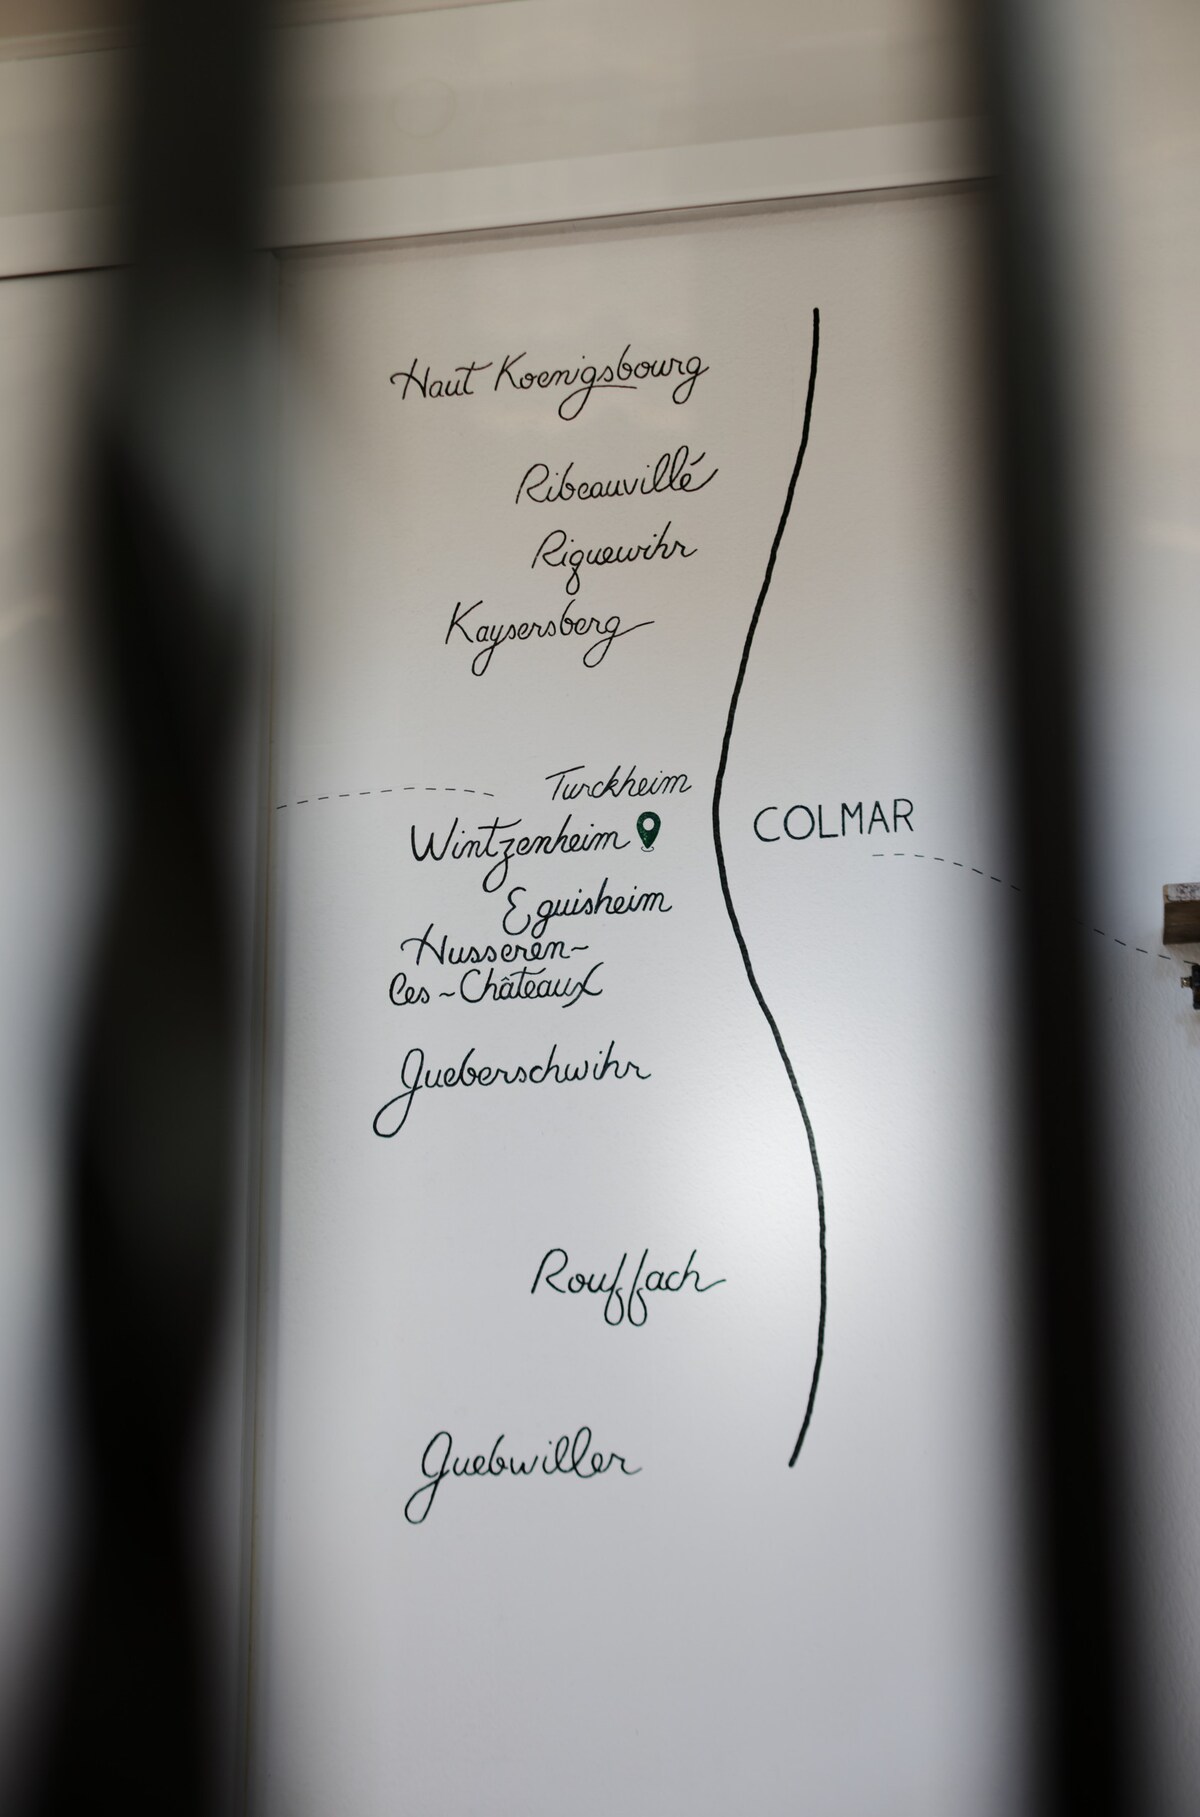 Haut Koenigsbourg
Ribeauvillé
Riquewihr
Kaysersberg
Turckheim
Wintzenheim
COLMAR
Eguisheim
Husseren-
les-Châteaux
Gueberschwihr
Rouffach
Guebwiller